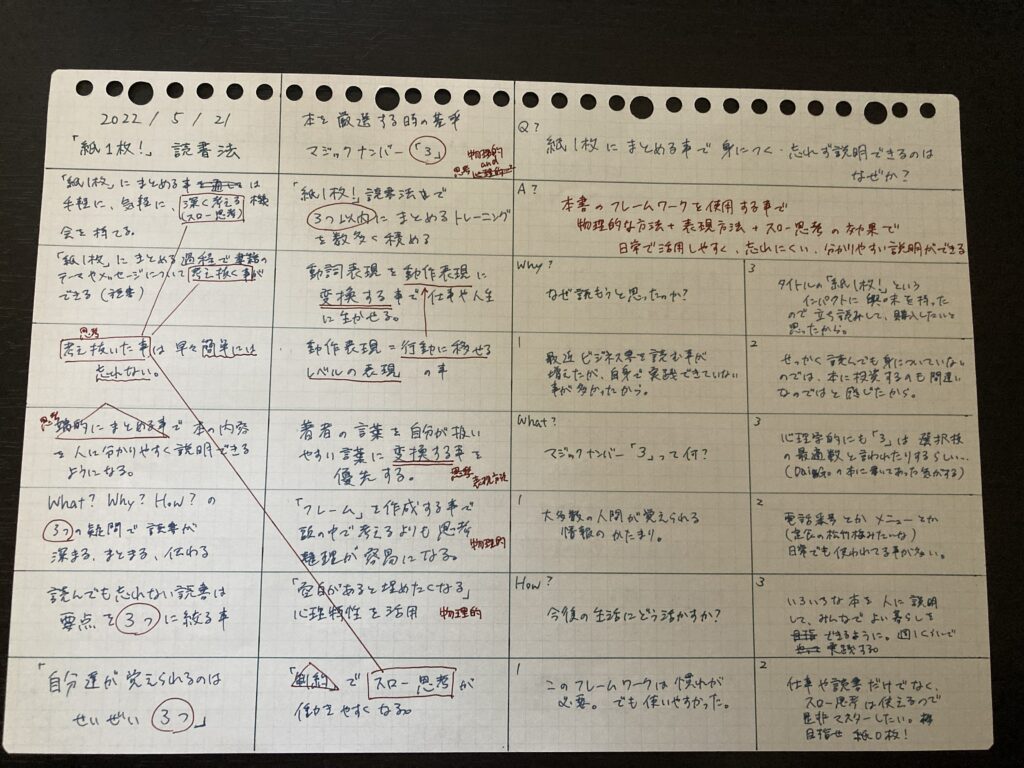 2022/5/21
「紙1枚!」読書法
「紙1枚」にまとめる事は
手軽に、気軽に、深く考える機
(スロー思考)
会を持てる。
「紙1枚」にまとめる過程で
テーマやメッセージについて考え抜く事が
できる
思考
考え抜いた事は早々簡単には
忘れない。
思考
端的にまとめる事で本の内容
を人に分かりやすく説明できる
ようになる。
What? Why? How? の
3つの疑問で読書が
深まる、まとまる、伝わる
読んでも忘れない読書は
要点を3つに絞る事
「自分達が覚えられるのは
せいぜい3つ」
本を厳選する時の基準
マジックナンバー「3」
物理的
and
思考
心理的
「紙1枚!」読書法まで
3つ以内にまとめるトレーニング
を数多く積める
動詞表現を動作表現に
変換する事で仕事や人生
に生かせる。
動作表現=行動に移せる
レベルの表現 の事
著者の言葉を自分が扱い
やすい言葉に変換する事を
優先する。
思考
表現方法
「フレーム」を作成する事で
頭の中で考えるよりも思考
整理が容易になる。
物理的
「空白があると埋めたくなる」
心理特性を活用
物理的
「制約」でスロー思考が
働きやすくなる。
Q?
紙1枚にまとめる事で身につく・忘れず説明できるのは
なぜか?
A?
本書のフレームワークを使用する事で
物理的な方法+表現方法+スロー思考の効果で
日常で活用しやすく、忘れにくい、分かりやすい説明ができる
Why?
なぜ読もうと思ったのか?
3
タイトルの「紙1枚!」という
インパクトに興味を持った
ので立ち読みして、購入したいと
思ったから。
1
最近ビジネス書を読む事が
増えたが、自身で実践できていない
事が多かったから。
2
せっかく読んでも身についていない
のでは、本に投資するのも間違い
なのではと感じたから。
What?
マジックナンバー「3」って何?
3
心理学的にも「3」は選択肢
の最適数と言われたりするらしい…
(DaiGoの本に書いてあった気がする)
1
大多数の人間が覚えられる
情報のかたまり。
2
電話番号とかメニューとか
(定食の松竹梅みたいな)
日常でも使われてる事が多い。
How?
今後の生活にどう活かすか?
3
いろいろな本を人に説明
して、みんなでよい暮らしを
できるように。週1くらいで
実践する
1
このフレームワークは慣れが
必要。でも使いやすかった。
2
仕事や読書だけでなく、
スロー思考は使えるので
是非マスターしたい。
目指せ 紙0枚!